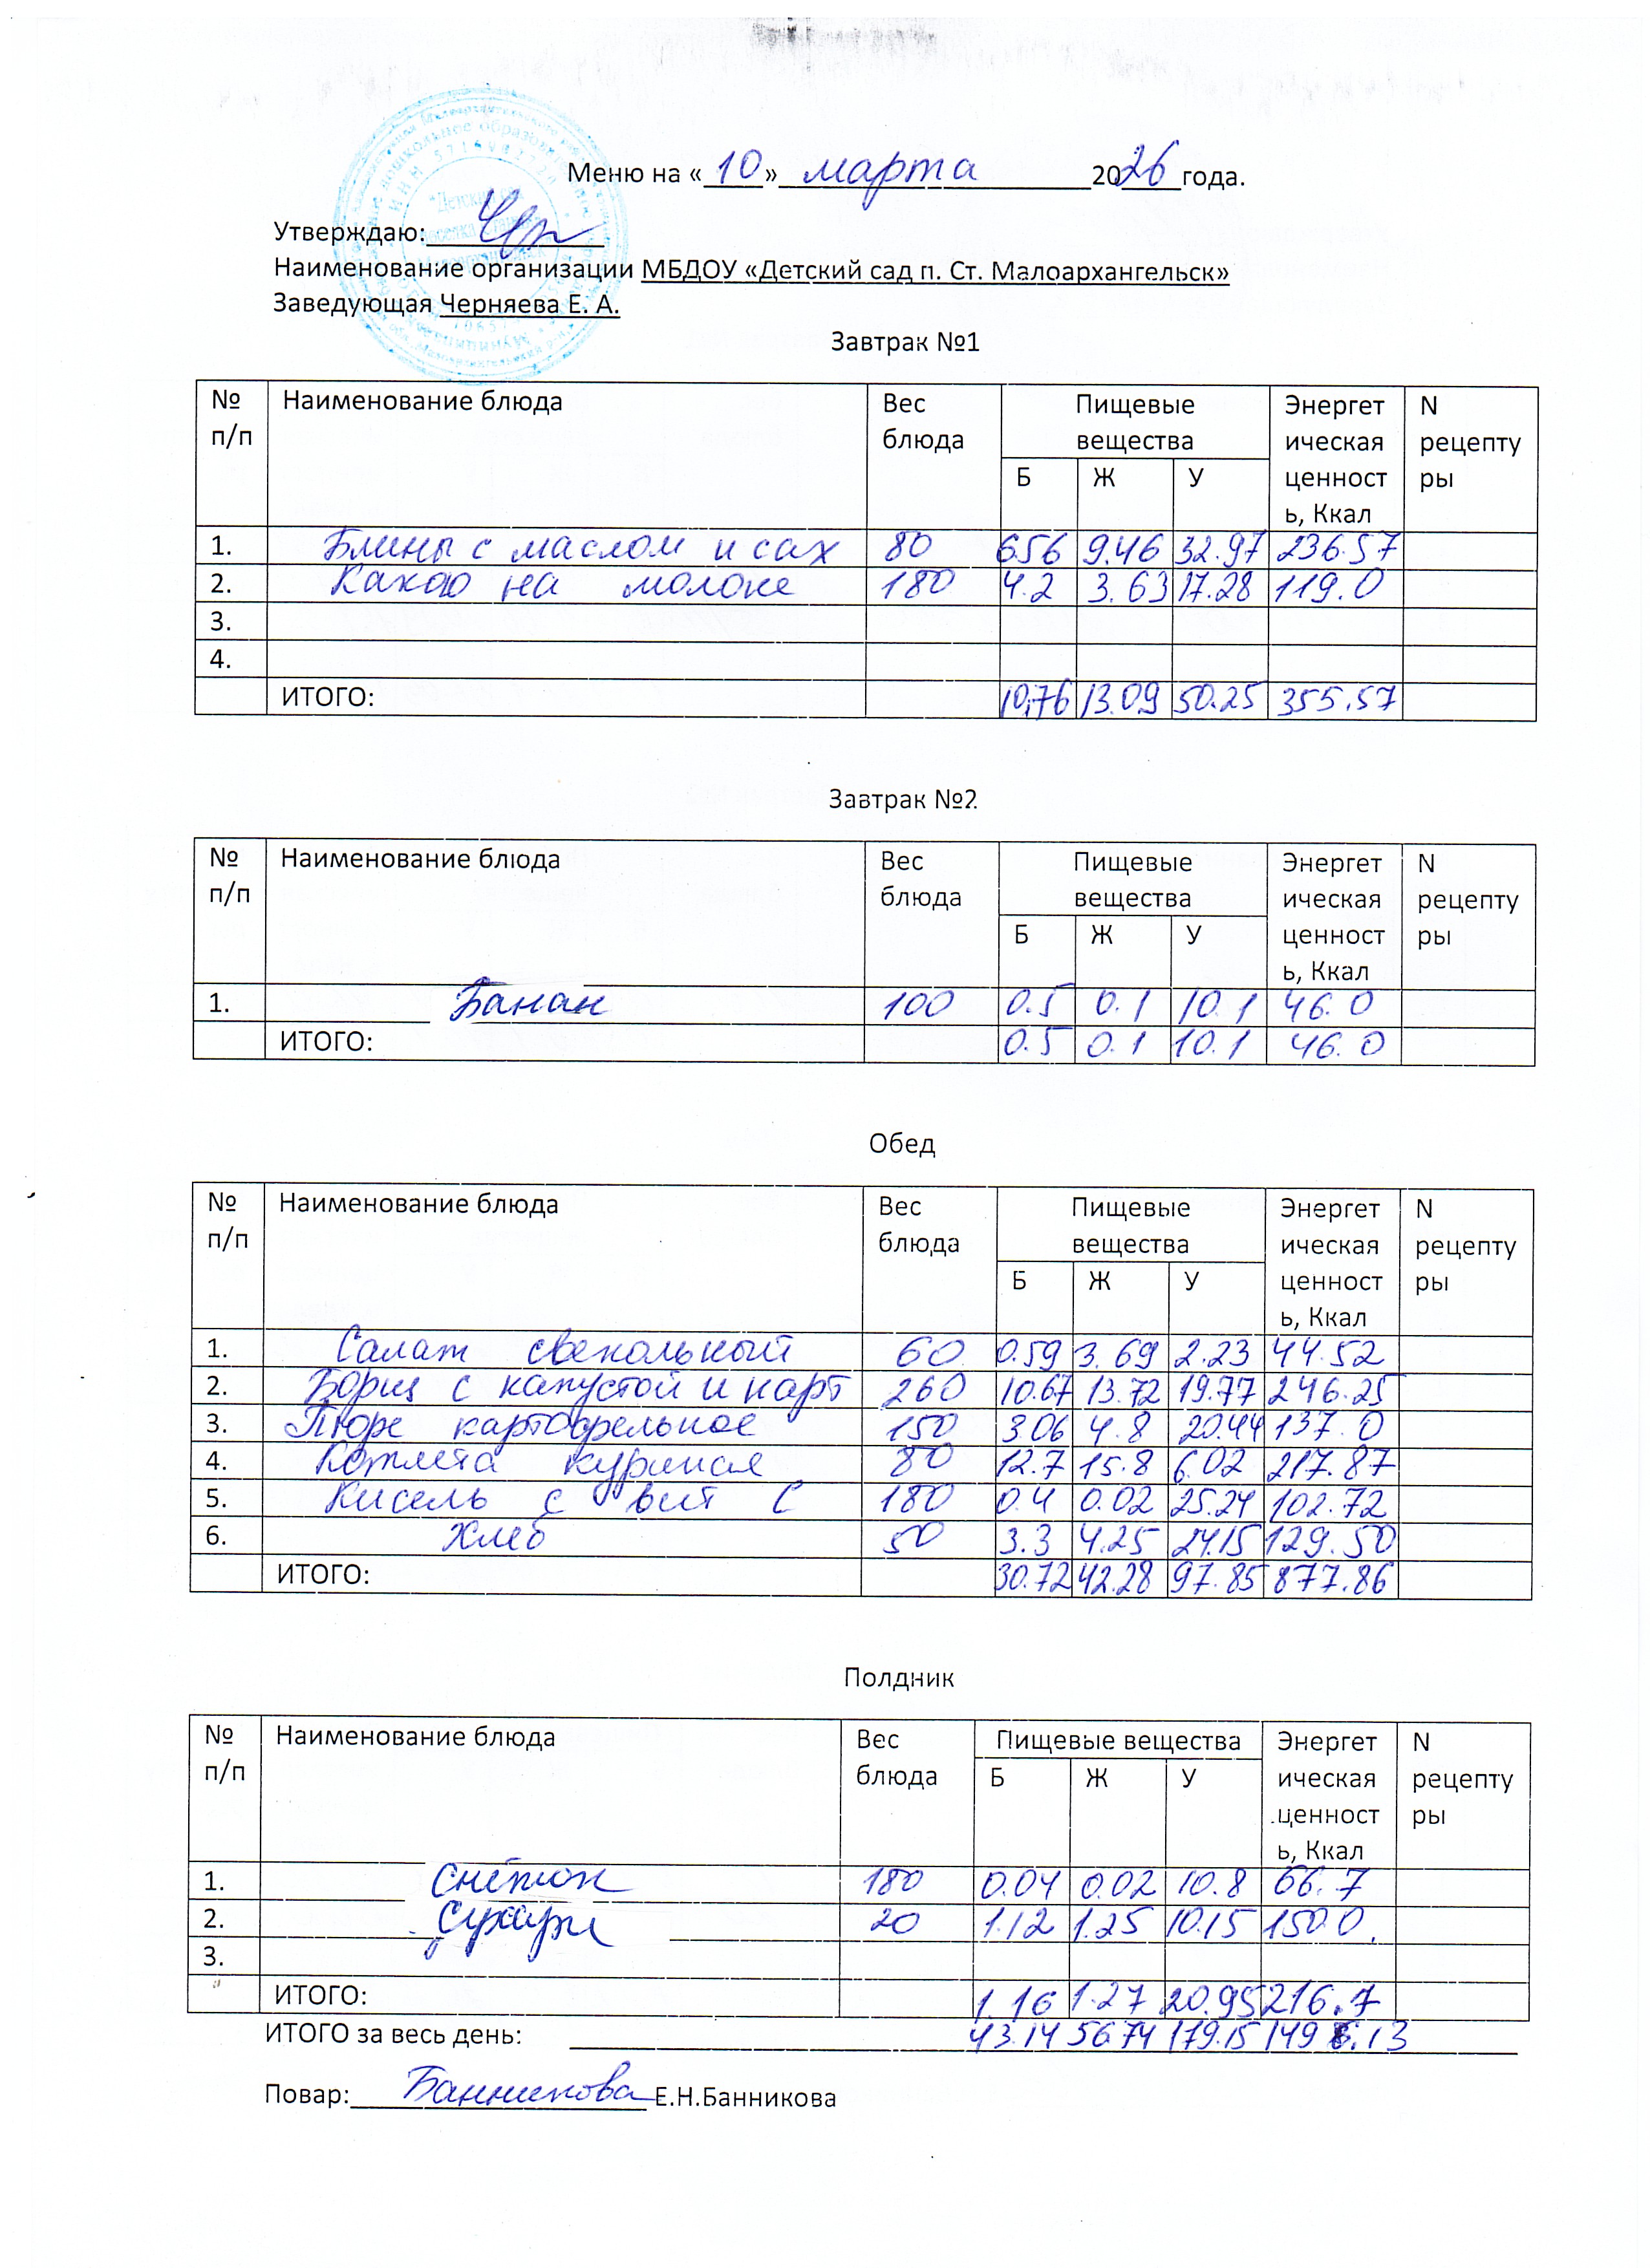 Меню на «10» марта 2026 года.
Утверждаю:
Наименование организации МБДОУ «Детский сад п. Ст. Малоархангельск»
Заведующая Черняева Е. А.
Завтрак №1
№ п/п Наименование блюда Вес блюда Пищевые вещества Б Ж У Энергетическая ценность, Ккал N рецептуры
1. Блины с маслом и сах 80 656 9.46 32.97 236.57
2. Какао на молоке 180 4.2 3.63 17.28 119.0
3.
4.
ИТОГО: 10,76 13.09 50.25 355.57
Завтрак №2
№ п/п Наименование блюда Вес блюда Пищевые вещества Б Ж У Энергетическая ценность, Ккал N рецептуры
1. Банан 100 0.5 0.1 10.1 46.0
ИТОГО: 0.5 0.1 10.1 46.0
Обед
№ п/п Наименование блюда Вес блюда Пищевые вещества Б Ж У Энергетическая ценность, Ккал N рецептуры
1. Салат свекольный 60 0.59 3.69 2.23 44.52
2. Борщ с капустой и карт 260 10.67 13.72 19.77 246.25
3. Пюре картофельное 150 3.06 4.8 20.44 137.0
4. Котлета куриная 80 12.7 15.8 6.02 217.87
5. Кисель с вит С 180 0.4 0.02 25.24 102.72
6. Хлеб 50 3.3 4.25 24.15 129.50
ИТОГО: 30.72 42.28 97.85 877.86
Полдник
№ п/п Наименование блюда Вес блюда Пищевые вещества Б Ж У Энергетическая ценность, Ккал N рецептуры
1. Снежок 180 0.04 0.02 10.8 66.7
2. Сухари 20 1.12 1.25 10.15 150.0
3.
ИТОГО: 1.16 1.27 20.95 216.7
ИТОГО за весь день: 43.14 56.74 179.15 1496.13
Повар: Банникова Е.Н.Банникова